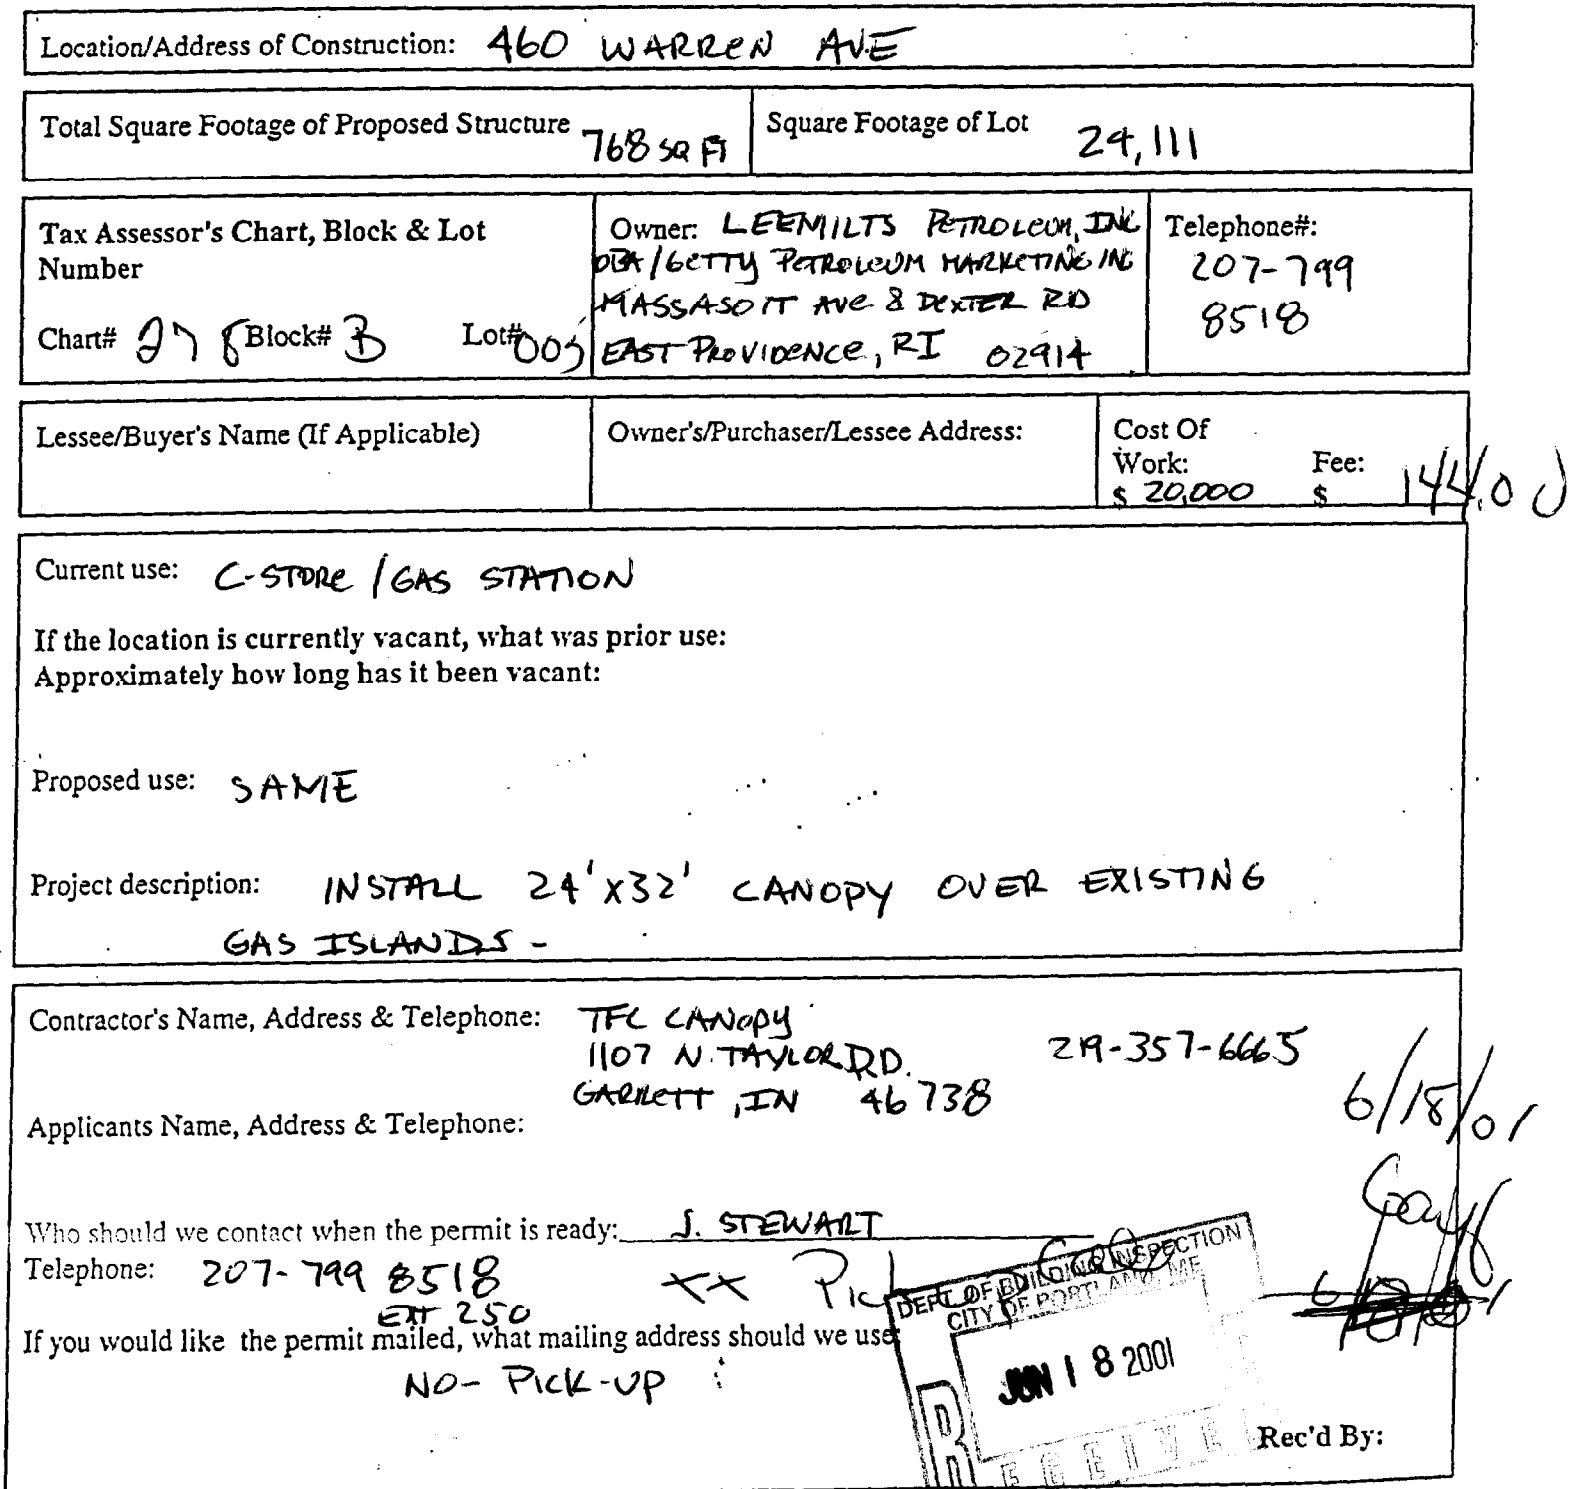 Location/Address of Construction: 460 WARREN AVE
Total Square Footage of Proposed Structure 768 SQ FT
Square Footage of Lot 24,111
Tax Assessor's Chart, Block & Lot
Number
Chart# 278 Block# B Lot# 005
Owner: LEEMILTS PETROLEUM, INC
DBA/GETTY PETROLEUM MARKETING INC
MASSASOIT AVE & DEXTER RD
EAST PROVIDENCE, RI 02914
Telephone#:
207-799
8518
Lessee/Buyer's Name (If Applicable)
Owner's/Purchaser/Lessee Address:
Cost Of
Work: Fee:
$ 20,000 $ 144.00
Current use: C-STORE / GAS STATION
If the location is currently vacant, what was prior use:
Approximately how long has it been vacant:
Proposed use: SAME
Project description: INSTALL 24'X32' CANOPY OVER EXISTING
GAS ISLANDS -
Contractor's Name, Address & Telephone: TFC CANOPY
1107 N. TAYLOR RD. 219-357-6665
GARRETT, IN 46738
6/18/01
Applicants Name, Address & Telephone:
Who should we contact when the permit is ready: J. STEWART
Telephone: 207-799 8518 XX Pick up
EXT 250
DEPT. OF BUILDING INSPECTION
CITY OF PORTLAND, ME
If you would like the permit mailed, what mailing address should we use:
NO- PICK-UP
JUN 18 2001
RECEIVE
Rec'd By: